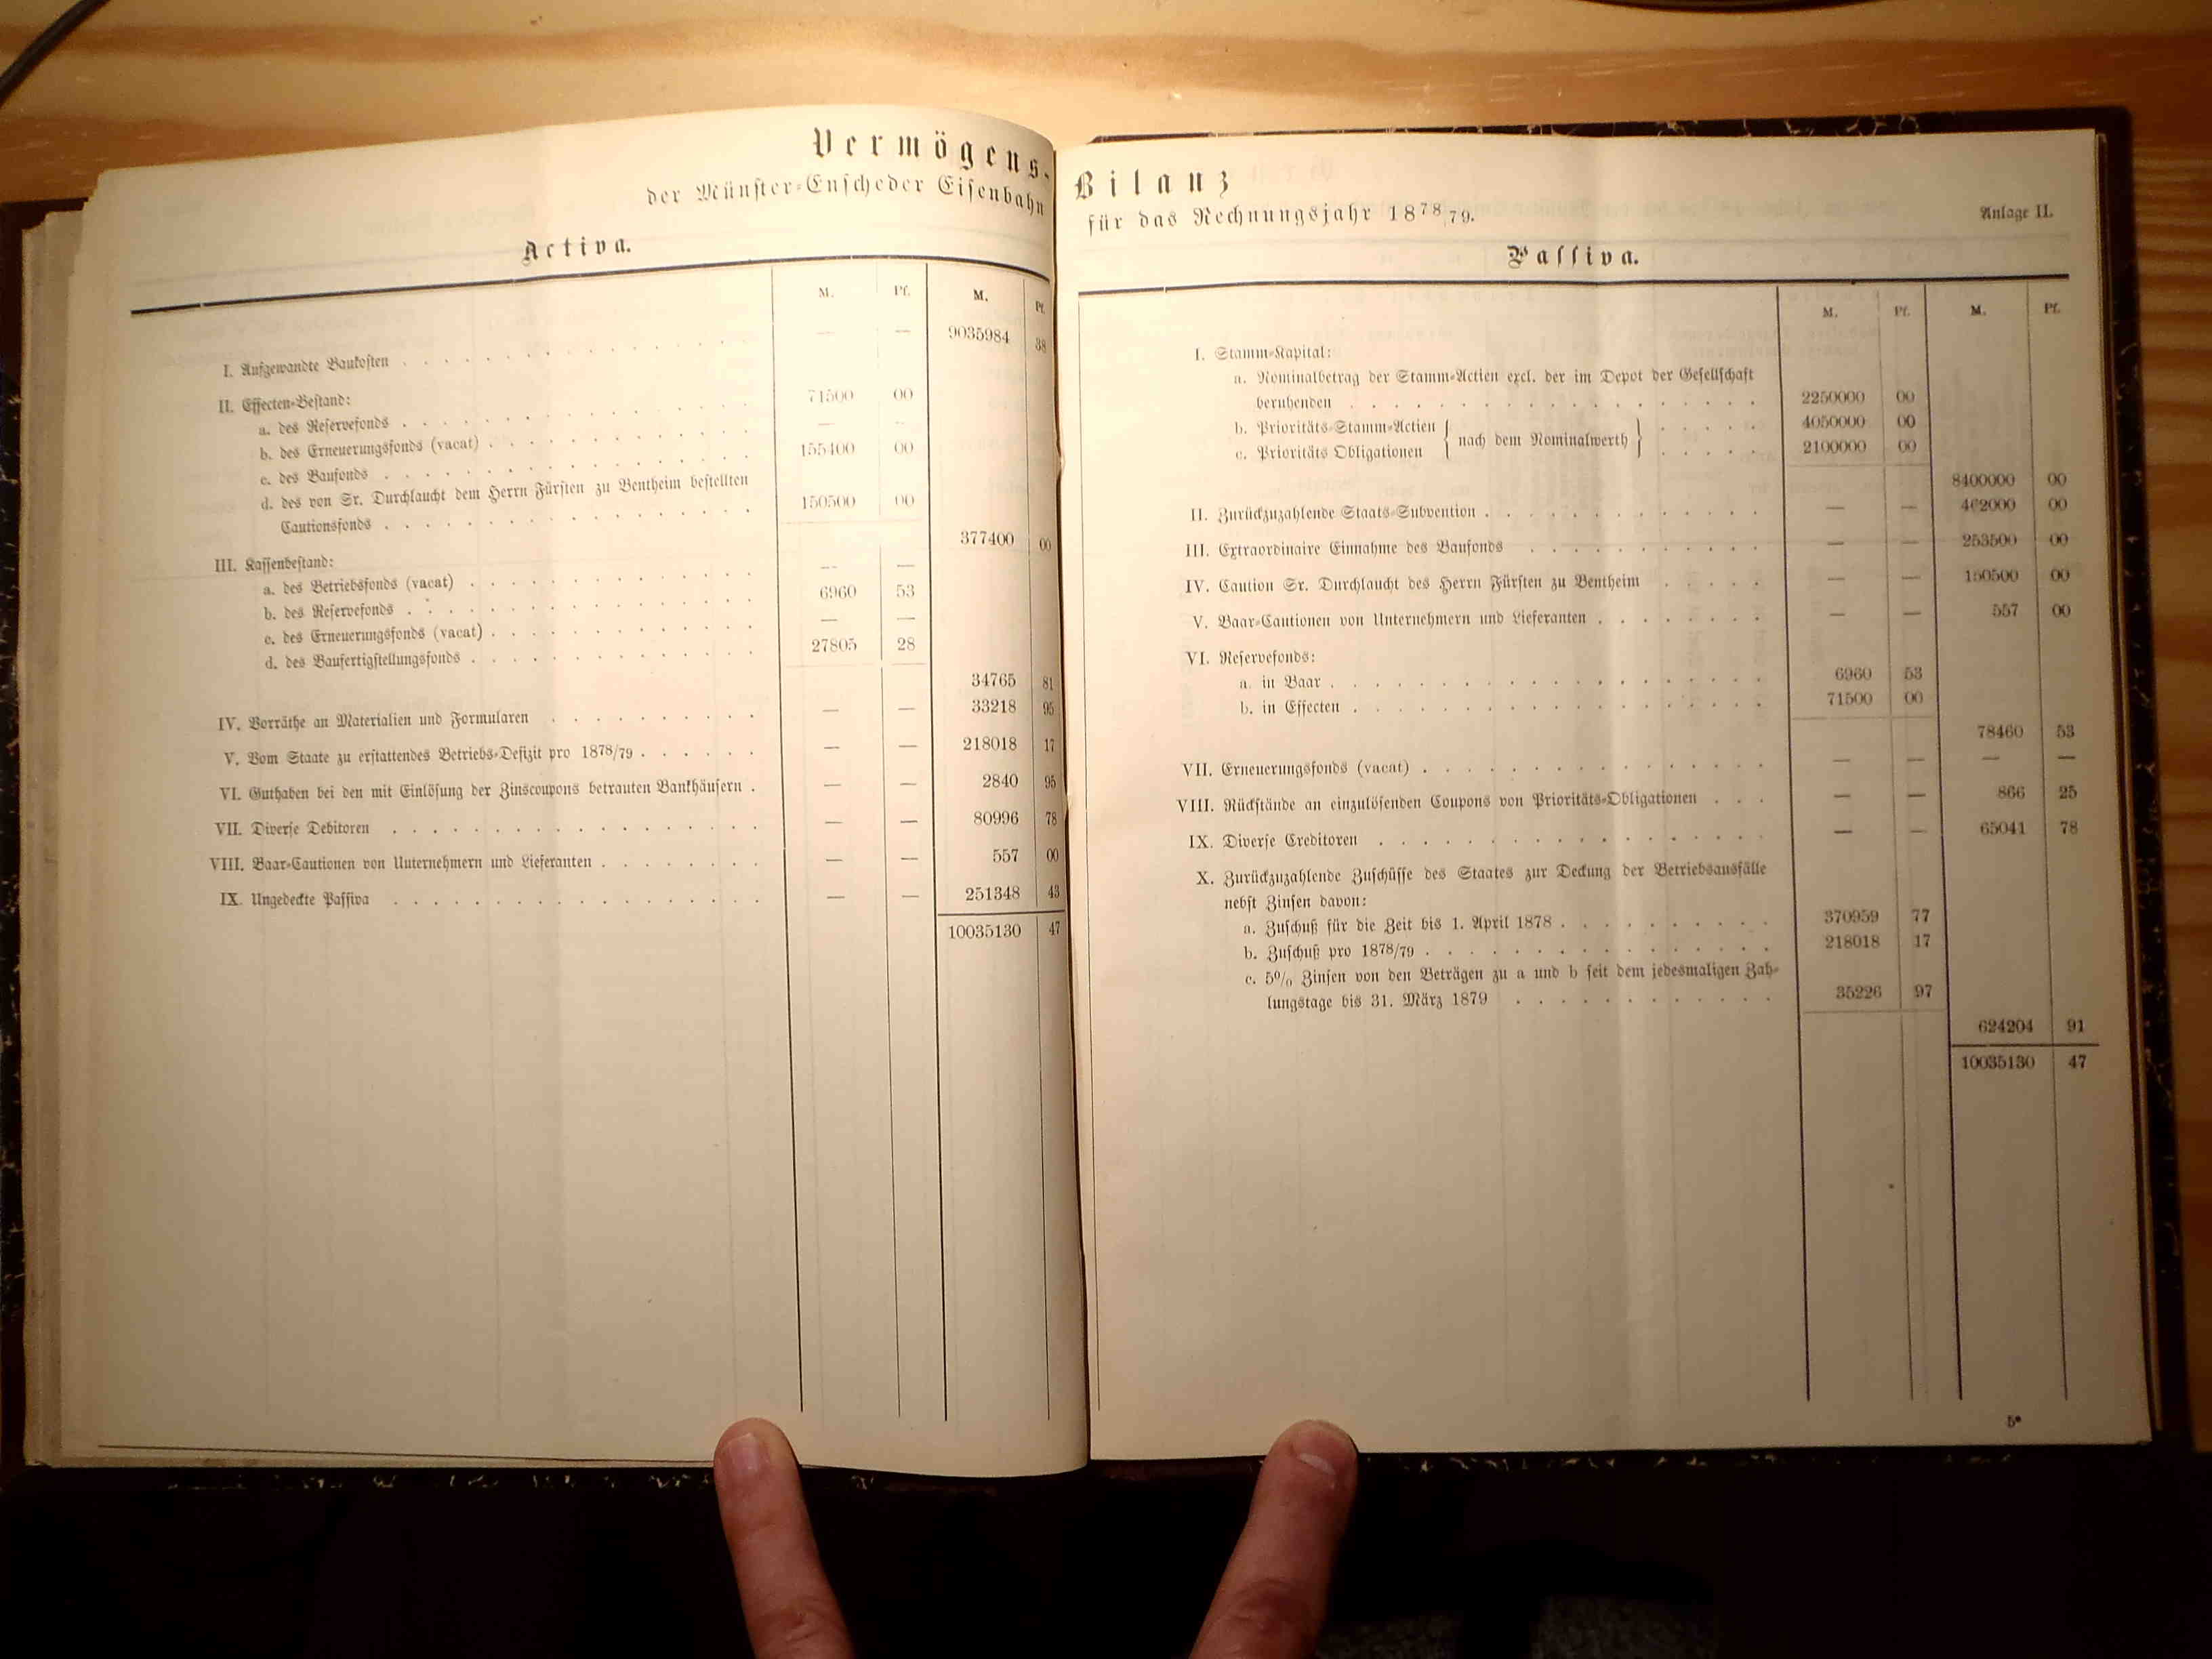 Vermögens-
der Münster-Enscheder Eisenbahn
Activa.
M. Pf. M. Pf.
I. Aufgewandte Baukosten — — 9035984 38
II. Effecten-Bestand:
a. des Reservefonds 71500 00
b. des Erneuerungsfonds (vacat) — —
c. des Baufonds 155400 00
d. des von Sr. Durchlaucht dem Herrn Fürsten zu Bentheim bestellten
Cautionsfonds 150500 00
377400 00
III. Kassenbestand:
a. des Betriebsfonds (vacat) — —
b. des Reservefonds 6960 53
c. des Erneuerungsfonds (vacat) — —
d. des Baufertigstellungsfonds 27805 28
34765 81
IV. Vorräthe an Materialien und Formularen — — 33218 95
V. Vom Staate zu erstattendes Betriebs-Defizit pro 1878/79 — — 218018 17
VI. Guthaben bei den mit Einlösung der Zinscoupons betrauten Bankhäusern — — 2840 95
VII. Diverse Debitoren — — 80996 78
VIII. Baar-Cautionen von Unternehmern und Lieferanten — — 557 00
IX. Ungedeckte Passiva — — 251348 43
10035130 47
Bilanz
für das Rechnungsjahr 1878/79.
Anlage II.
Passiva.
M. Pf. M. Pf.
I. Stamm-Kapital:
a. Nominalbetrag der Stamm-Actien excl. der im Depot der Gesellschaft
beruhenden 2250000 00
b. Prioritäts-Stamm-Actien 4050000 00
nach dem Nominalwerth
c. Prioritäts Obligationen 2100000 00
8400000 00
II. Zurückzuzahlende Staats-Subvention — — 462000 00
III. Extraordinaire Einnahme des Baufonds — — 253500 00
IV. Caution Sr. Durchlaucht des Herrn Fürsten zu Bentheim — — 150500 00
V. Baar-Cautionen von Unternehmern und Lieferanten — — 557 00
VI. Reservefonds:
a. in Baar 6960 53
b. in Effecten 71500 00
78460 53
VII. Erneuerungsfonds (vacat) — — — —
VIII. Rückstände an einzulösenden Coupons von Prioritäts-Obligationen — — 866 25
IX. Diverse Creditoren — — 65041 78
X. Zurückzuzahlende Zuschüsse des Staates zur Deckung der Betriebsausfälle
nebst Zinsen davon:
a. Zuschuß für die Zeit bis 1. April 1878 370959 77
b. Zuschuß pro 1878/79 218018 17
c. 5% Zinsen von den Beträgen zu a und b seit dem jedesmaligen Zah-
lungstage bis 31. März 1879 35226 97
624204 91
10035130 47
5*